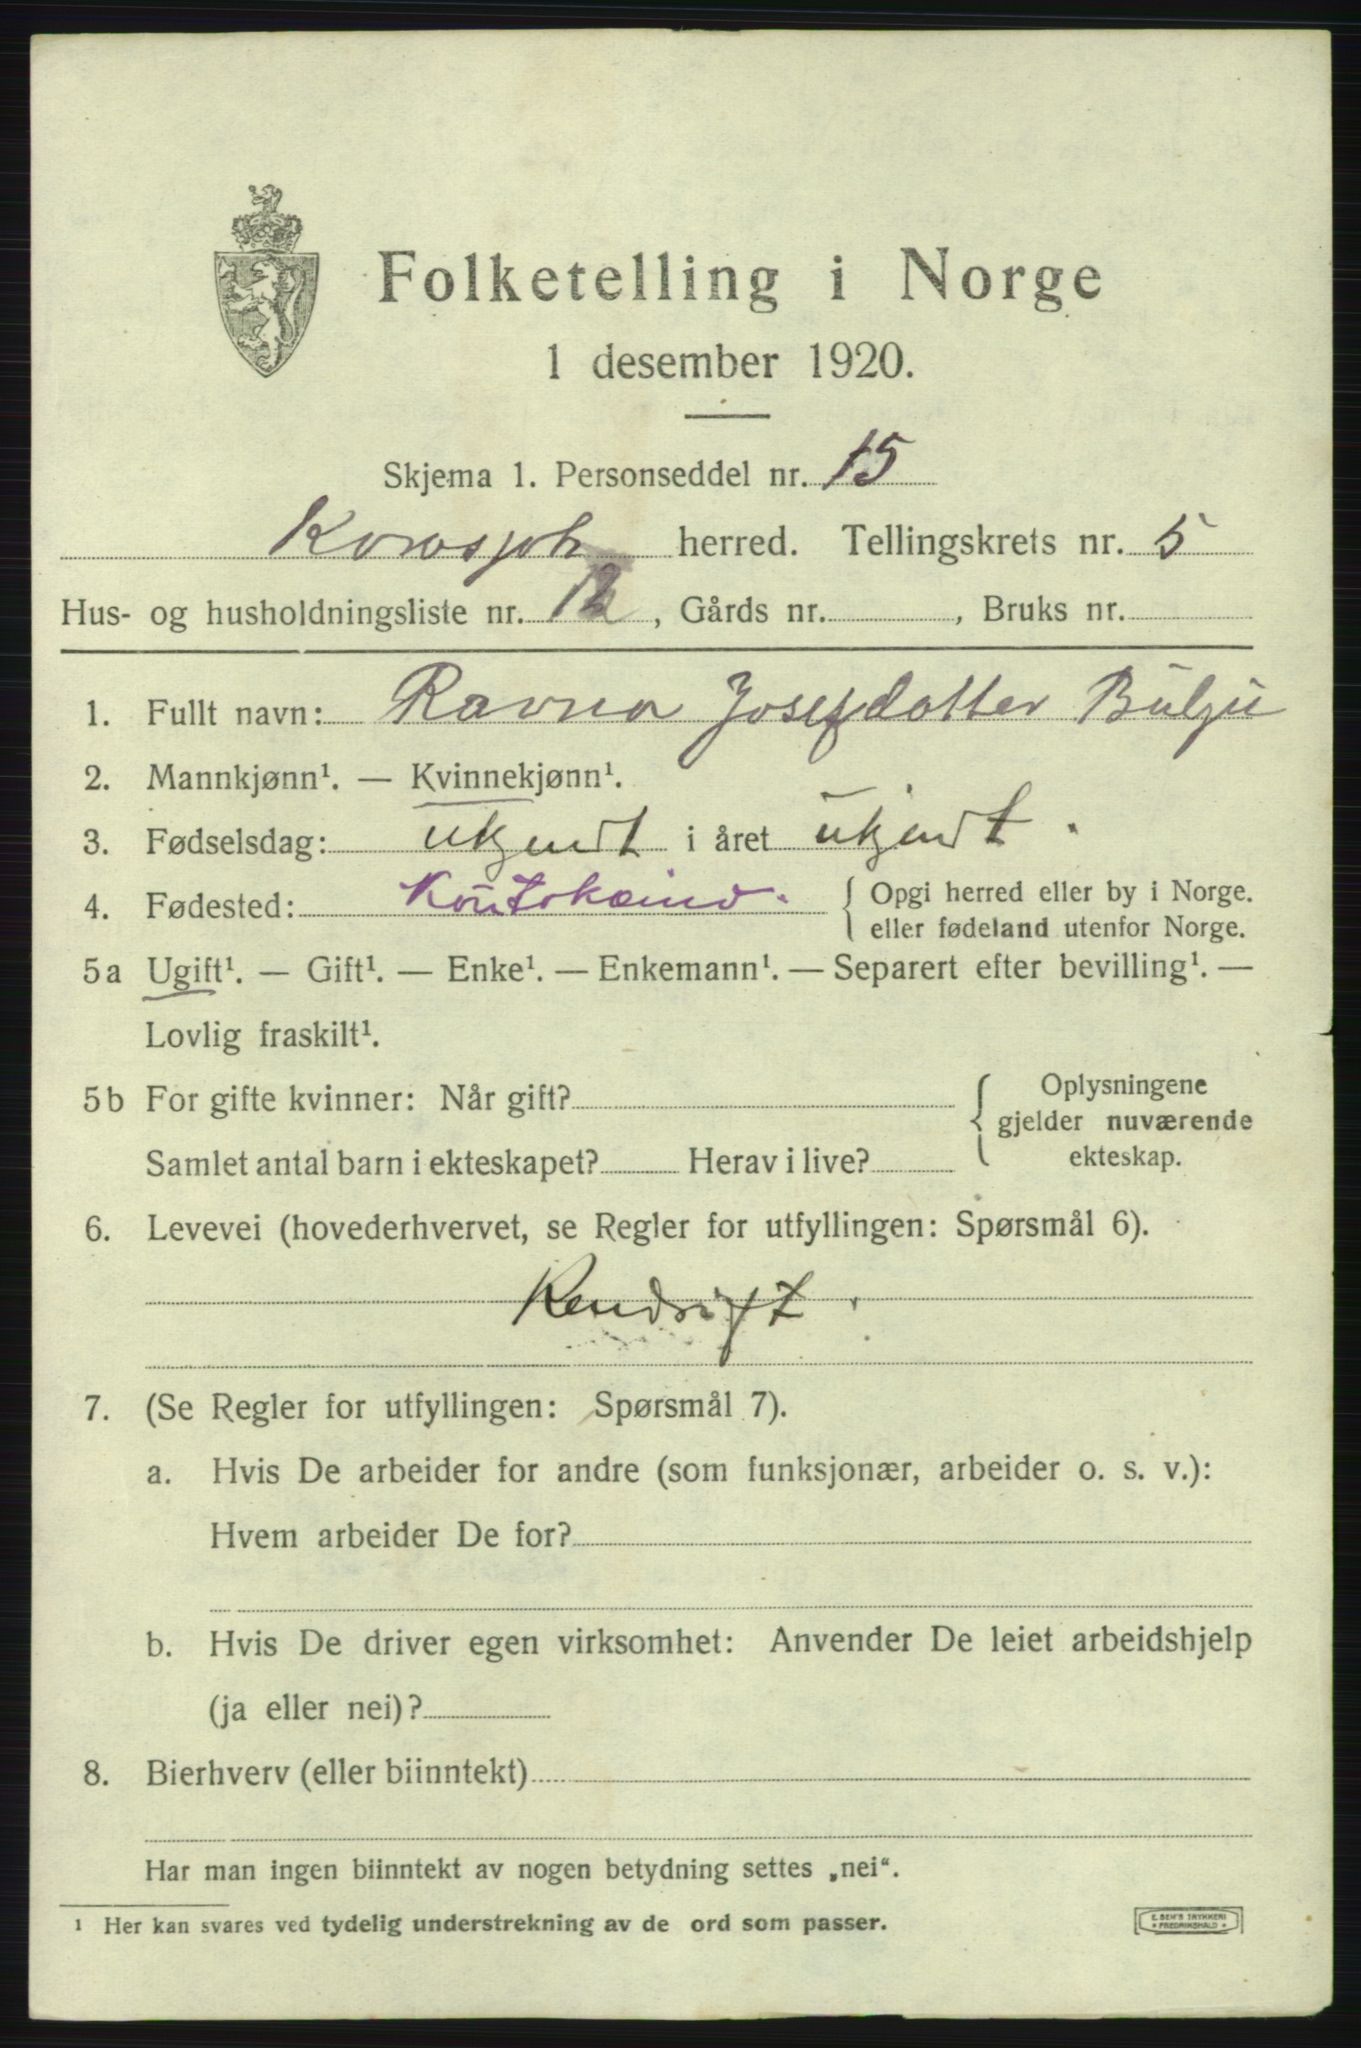 Folketelling i Norge
1 desember 1920.
Skjema 1. Personseddel nr. 15
Karasjok herred. Tellingskrets nr. 5
Hus- og husholdningsliste nr. 12, Gårds nr. , Bruks nr.
1. Fullt navn: Ravna Josefdatter Bulju
2. Mannkjønn¹. — Kvinnekjønn¹.
3. Fødselsdag: ukjendt i året ukjendt.
4. Fødested: Koutokeino. { Opgi herred eller by i Norge.
eller fødeland utenfor Norge.
5a Ugift¹. — Gift¹. — Enke¹. — Enkemann¹. — Separert efter bevilling¹. —
Lovlig fraskilt¹.
5b For gifte kvinner: Når gift? { Oplysningene
gjelder nuværende
ekteskap.
Samlet antal barn i ekteskapet? Herav i live?
6. Levevei (hovederhvervet, se Regler for utfyllingen: Spørsmål 6).
Rendrift.
7. (Se Regler for utfyllingen: Spørsmål 7).
a. Hvis De arbeider for andre (som funksjonær, arbeider o. s. v.):
Hvem arbeider De for?
b. Hvis De driver egen virksomhet: Anvender De leiet arbeidshjelp
(ja eller nei)?
8. Bierhverv (eller biinntekt)
Har man ingen biinntekt av nogen betydning settes „nei“.
¹ Her kan svares ved tydelig understrekning av de ord som passer.
E. SEM'S TRYKKERI
FREDRIKSHALD